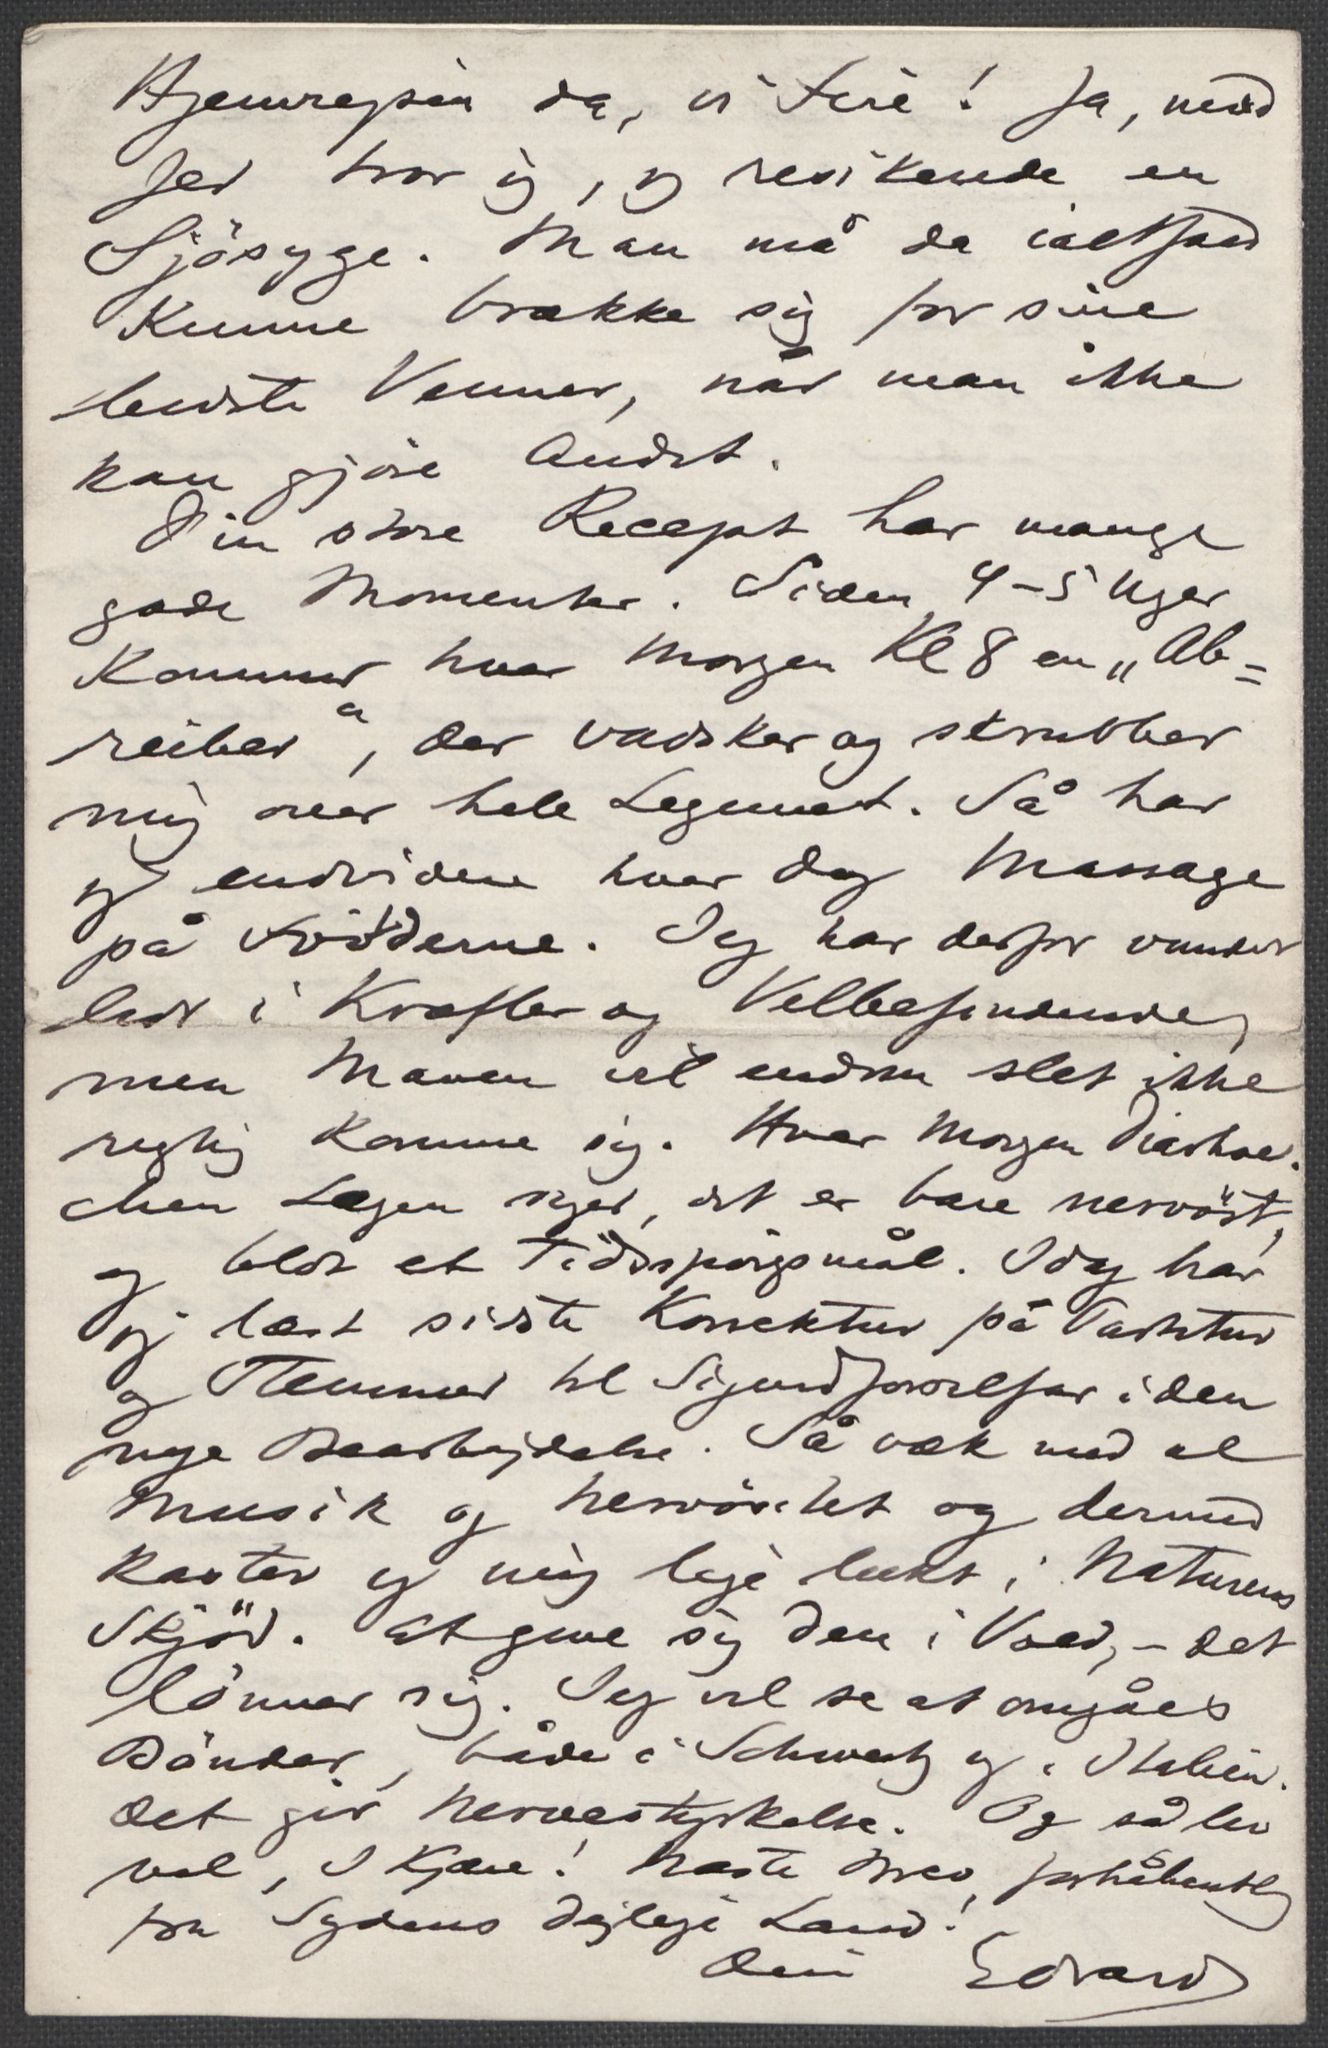 Hjemrejsen da, vi Fire! Ja, med
Jer tror jeg, jeg resikerede en
Sjösyge. Man må da ialtfald
kunne brække sig for sine
bedste Venner, når man ikke
kan gjöre Andet.
Din store Recept har mange
gode Momenter. Siden 4-5 Uger
kommer hver Morgen Kl 8 en „Ab=
reiber“, der vadsker og skrubber
mig over hele Legemet. Så har
jeg endvidere hver Dag Massage
på Födderne. Jeg har derfor vundet
lidt i Kræfter og Velbefindende,
men Maven vil endnu slet ikke
rigtig komme sig. Hver Morgen Diarhoe.
Men Lægen siger, det er bare nervöst,
og blot et Tidsspörgsmål. Idag har
jeg læst sidste Korrektur på Partitur
og Stemmer til Sigurd Jorsalfar i den
nye Bearbejdelse. Så væk med al
Musik og Nervösitet og dermed
kaster jeg mig lige lukt i Naturens
Skjöd. At give sig den i Vold, – det
lönner sig. Jeg vil se at omgåes
Bönder, både i Schweitz og i Italien.
Det gir Nervestyrkelse. Og så lev
vel, I Kjære! Næste Brev, forhåbentlig
fra Sydens dejlige Land!
Din Edvard